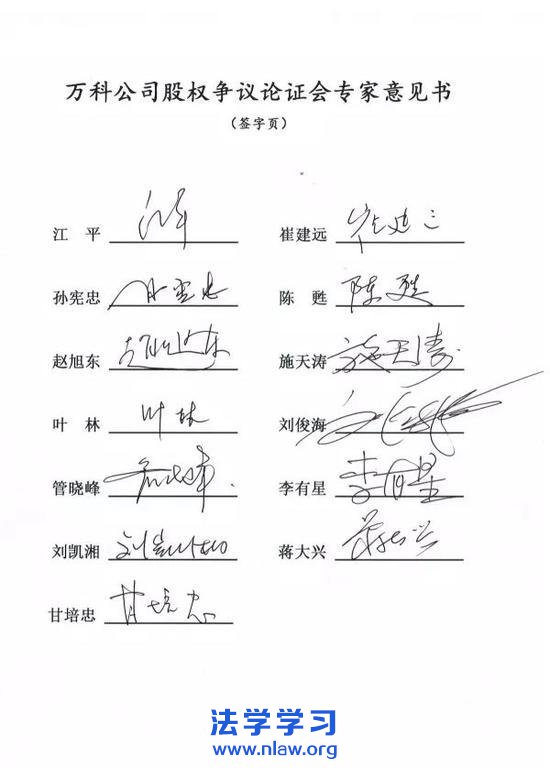 万科公司股权争议论证会专家意见书
（签字页）
江 平 江平 崔建远 崔建远
孙宪忠 孙宪忠 陈 甦 陈甦
赵旭东 赵旭东 施天涛 施天涛
叶 林 叶林 刘俊海
管晓峰 李有星 李有星
刘凯湘 刘凯湘 蒋大兴 蒋大兴
甘培忠 甘培忠
法学学习
www.nlaw.org